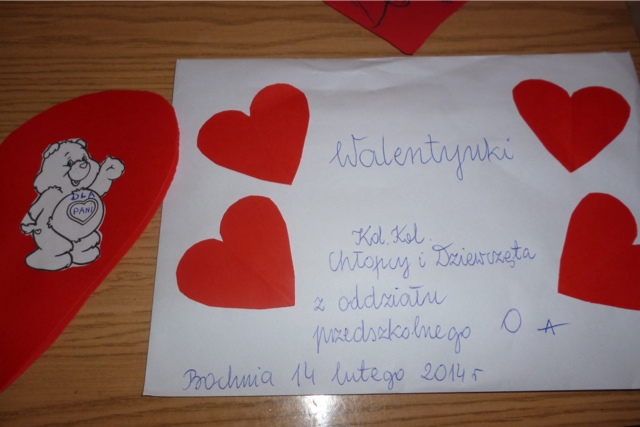 DLA
PANI
Walentynki
Kd. Kol.
Chłopcy i Dziewczęta
z oddziału
przedszkolnego O A
Bochnia 14 lutego 2014 r